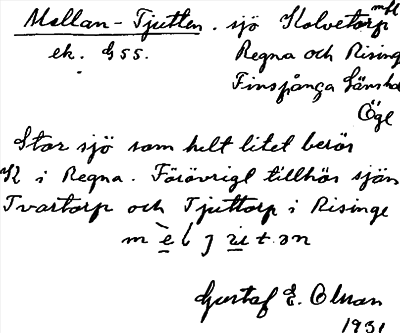 Mellan-Tjutten. sjö Kolvetorp mfl
ek. G 55. Regna och Risinge
Finspånga läns hd
Ögl
Stor sjö som helt litet berör
K i Regna. Förövrigt tillhör sjön
Tvartorp och Tjuttorp i Risinge
Gustaf E. Olman
1931